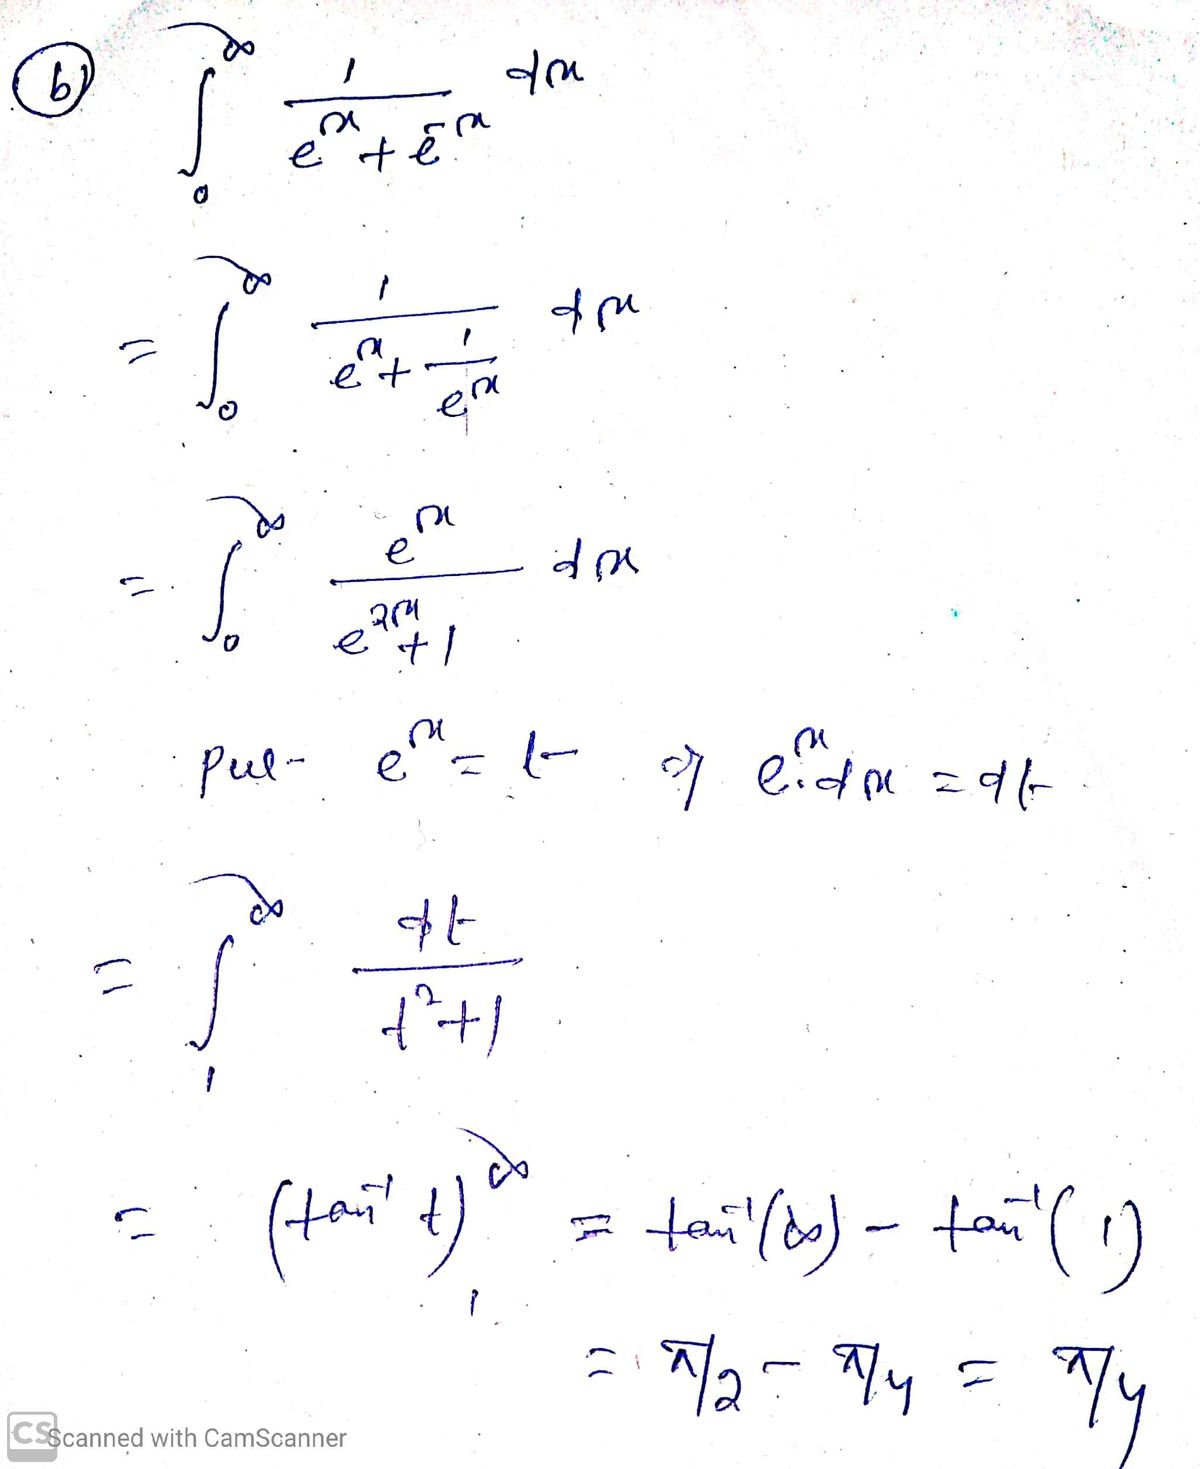 b) ∫₀^∞ 1/(eˣ + e⁻ˣ) dx
= ∫₀^∞ 1/(eˣ + 1/eˣ) dx
= ∫₀^∞ eˣ/(e²ˣ + 1) dx
put eˣ = t ⇒ eˣ.dx = dt
= ∫₁^∞ dt/(t² + 1)
= (tan⁻¹ t)₁^∞ = tan⁻¹(∞) - tan⁻¹(1)
= π/2 - π/4 = π/4
CS Scanned with CamScanner